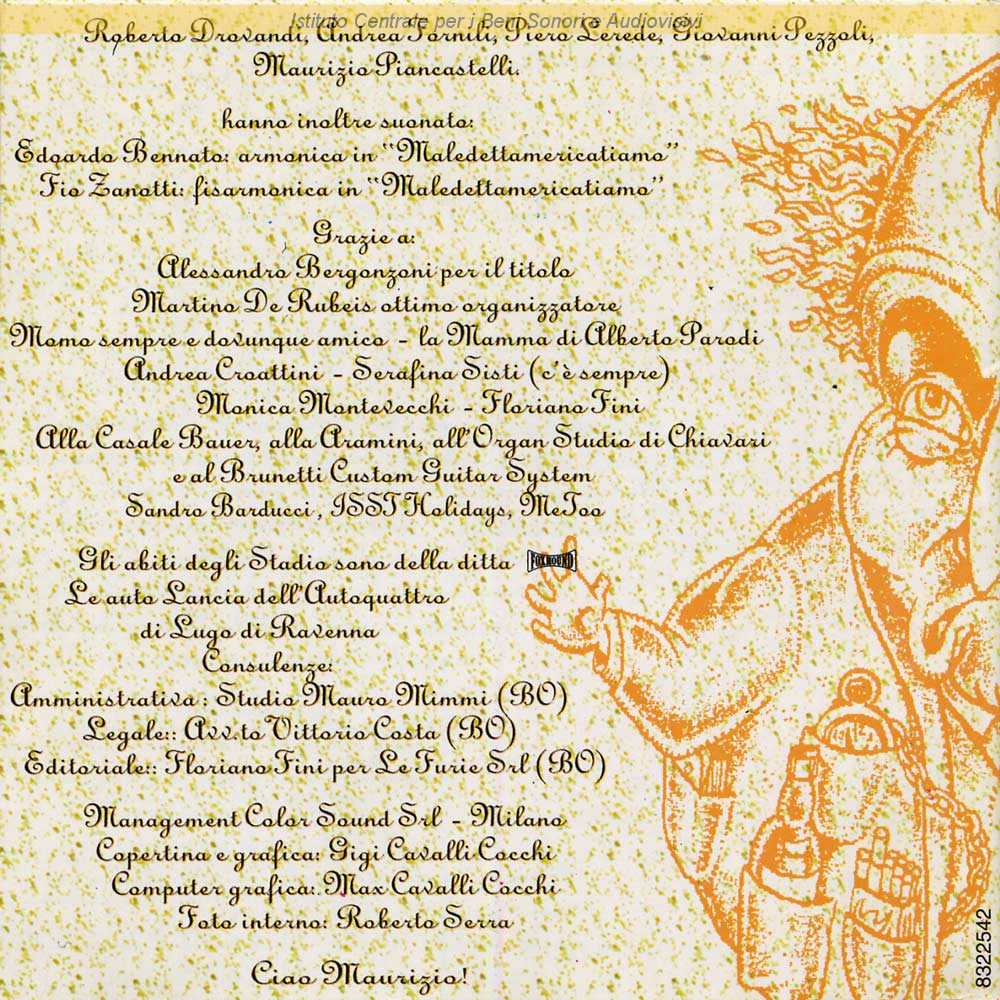 Istituto Centrale per i Beni Sonori e Audiovisivi
Roberto Drovandi, Andrea Fornili, Piero Lerede, Giovanni Pezzoli,
Maurizio Piancastelli.
hanno inoltre suonato:
Edoardo Bennato: armonica in "Maledettamericatiamo"
Fio Zanotti: fisarmonica in "Maledettamericatiamo"
Grazie a:
Alessandro Bergonzoni per il titolo
Martino De Rubeis ottimo organizzatore
Momo sempre e dovunque amico - la Mamma di Alberto Parodi
Andrea Croattini - Serafina Sisti (c'è sempre)
Monica Montevecchi - Floriano Fini
Alla Casale Bauer, alla Aramini, all'Organ Studio di Chiavari
e al Brunetti Custom Guitar System
Sandro Barducci, ISST Holidays, MeToo
Gli abiti degli Stadio sono della ditta FOXHOUND
Le auto Lancia dell'Autoquattro
di Lugo di Ravenna
Consulenze:
Amministrativa: Studio Mauro Mimmi (BO)
Legale:: Avv.to Vittorio Costa (BO)
Editoriale:: Floriano Fini per Le Furie Srl (BO)
Management Color Sound Srl - Milano
Copertina e grafica: Gigi Cavalli Cocchi
Computer grafica: Max Cavalli Cocchi
Foto interno: Roberto Serra
Ciao Maurizio!
8322542